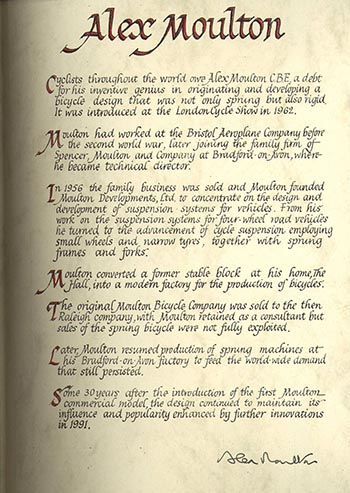 Alex Moulton
Cyclists throughout the world owe Alex Moulton C.B.E. a debt
for his inventive genius in originating and developing a
bicycle design that was not only sprung but also rigid.
It was introduced at the London Cycle Show in 1962.
Moulton had worked at the Bristol Aeroplane Company before
the second world war, later joining the family firm of
Spencer, Moulton and Company at Bradford-on-Avon, where
he became technical director.
In 1956 the family business was sold and Moulton founded
Moulton Developments, Ltd. to concentrate on the design and
development of suspension systems for vehicles. From his
work on the suspension systems for four-wheel road vehicles
he turned to the advancement of cycle suspension employing
small wheels and narrow tyres, together with sprung
frames and forks.
Moulton converted a former stable block at his home, The
Hall, into a modern factory for the production of bicycles.
The original Moulton Bicycle Company was sold to the then
Raleigh company, with Moulton retained as a consultant but
sales of the sprung bicycle were not fully exploited.
Later, Moulton resumed production of sprung machines at
his Bradford-on-Avon factory to feed the world-wide demand
that still persisted.
Some 30 years after the introduction of the first Moulton
commercial model, the design continued to maintain its
influence and popularity enhanced by further innovations
in 1991.
Alex Moulton